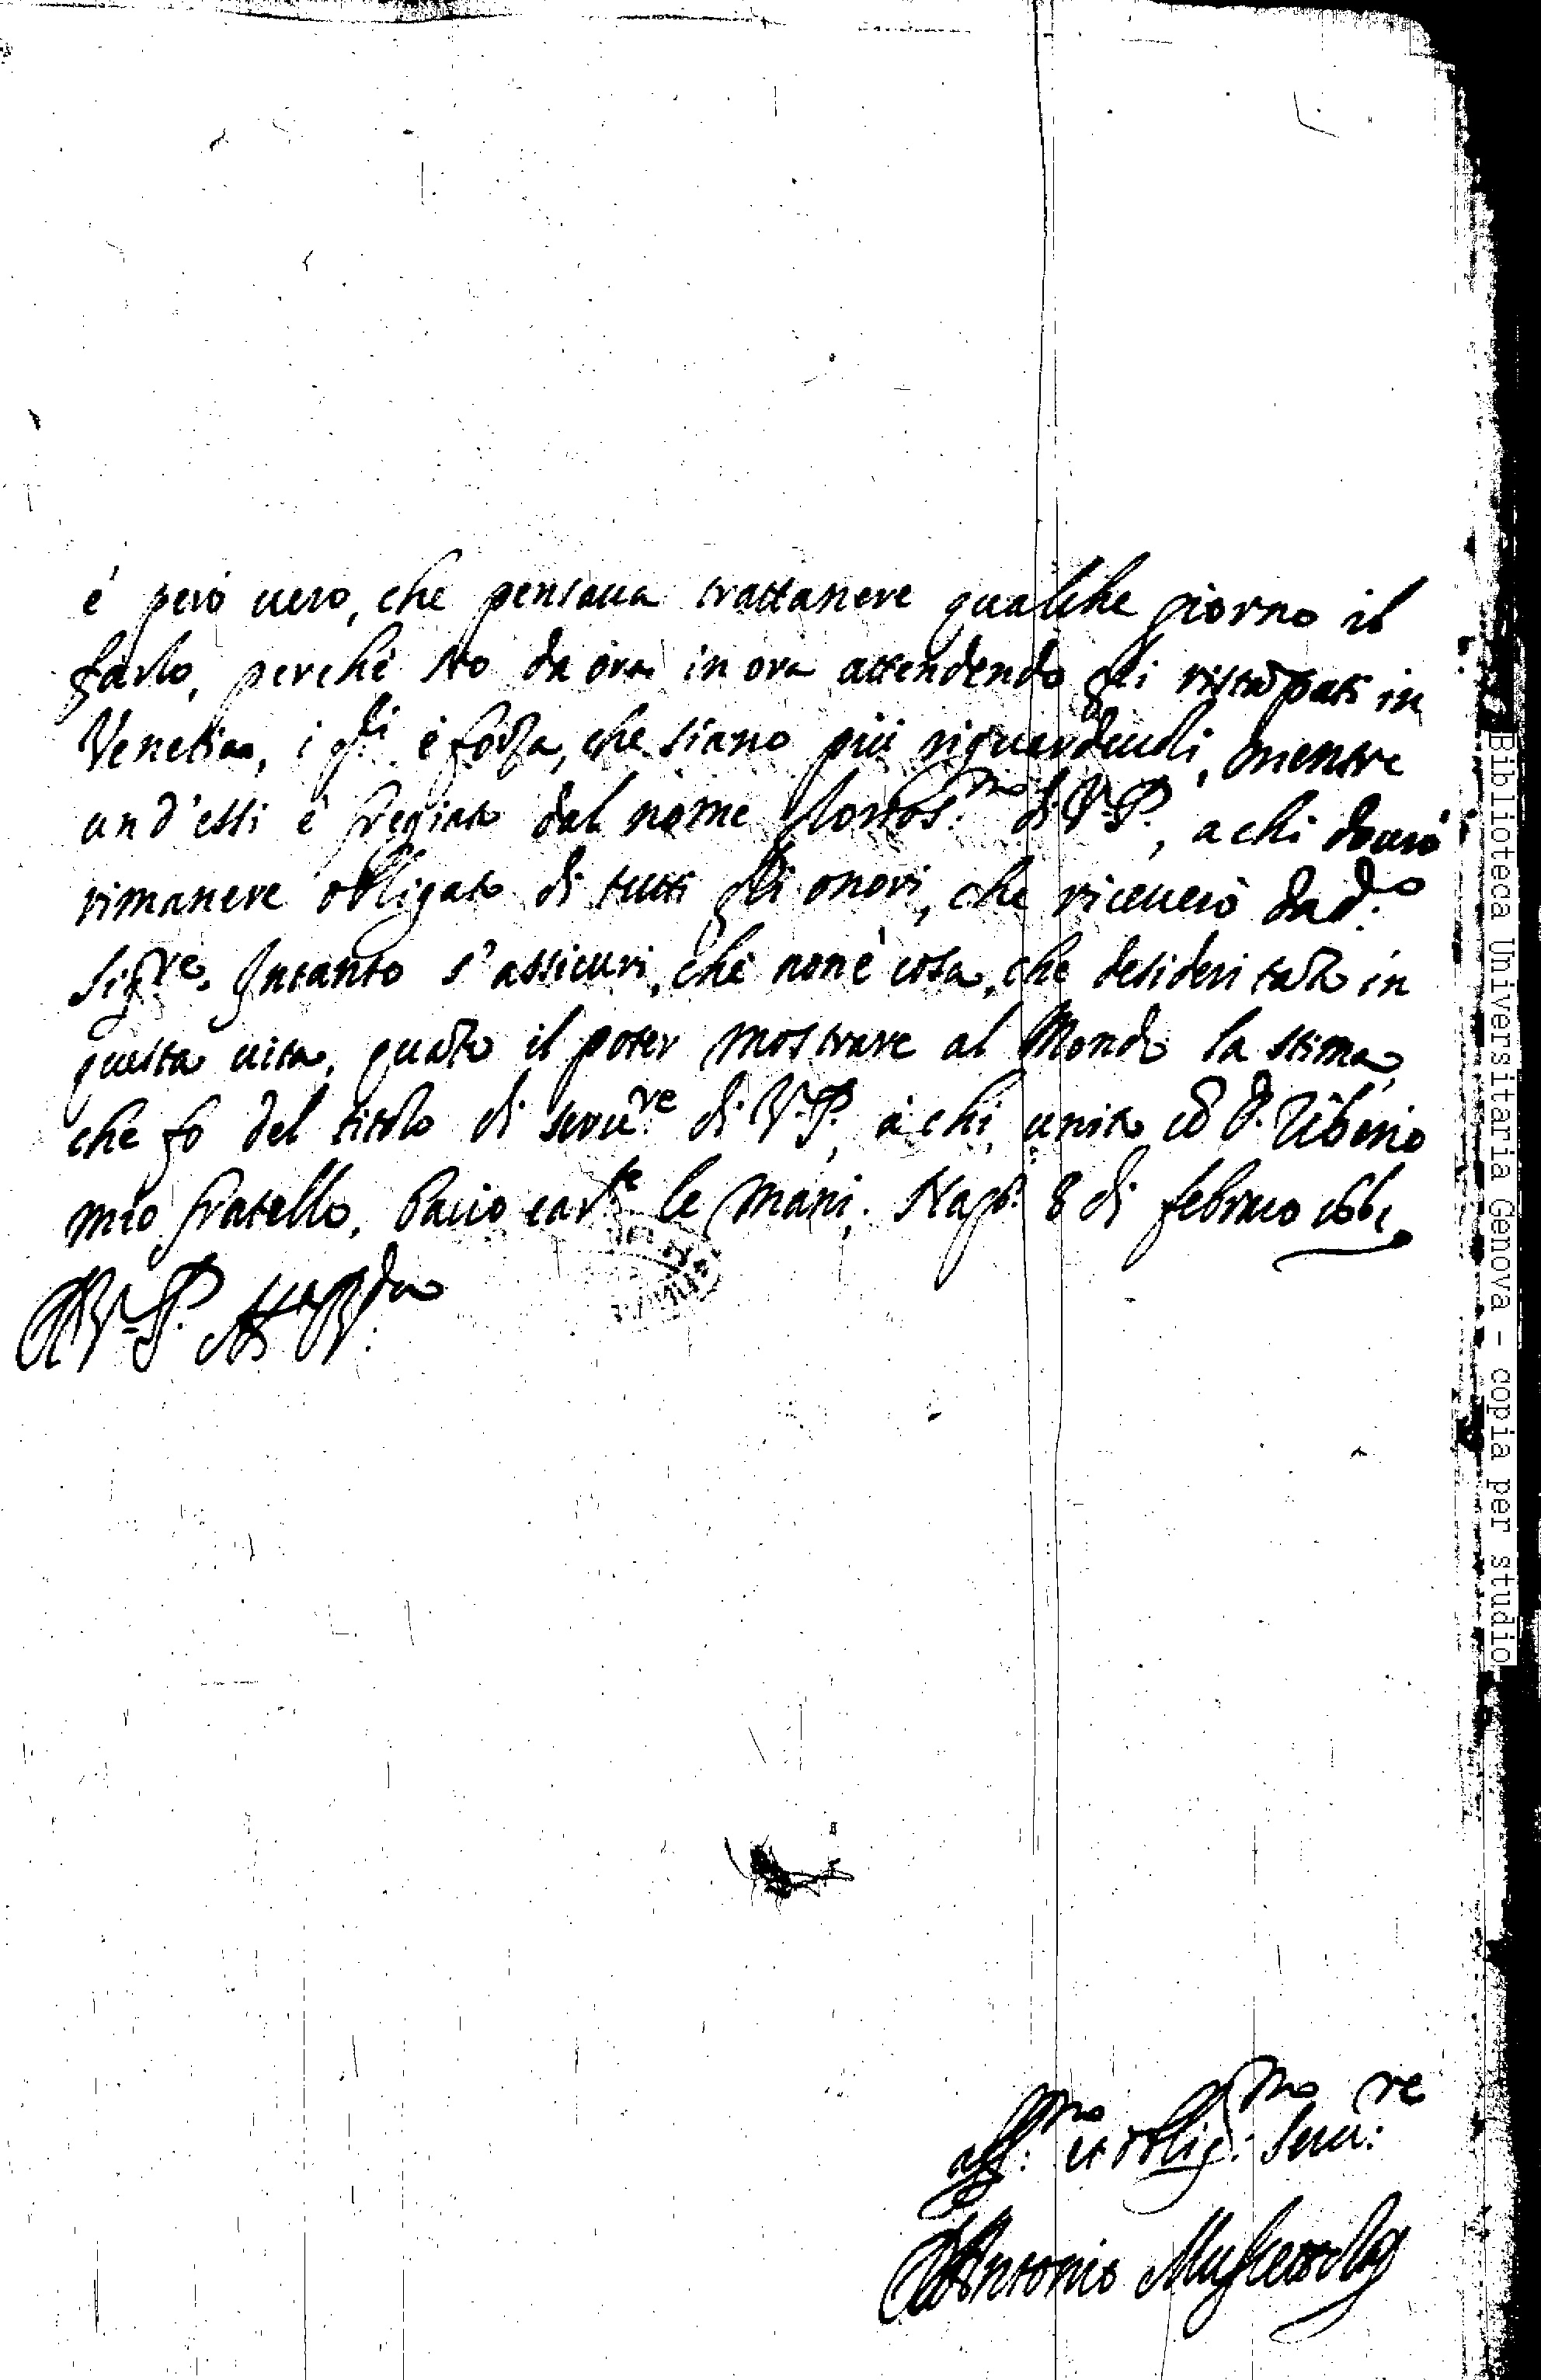 è però uero, che pensaua trattanere qualche giorno il
farlo, perche sto da ora in ora attendendo gli ristãpati in
Venetia, i q.li è forza, che siano più riguardeuoli, mentre
un d'essi è fregiato dal nome glorios.mo di V. P., a chi dourò
rimanere obligato di tutti gli onori, che riceuerò da d.o
Sig.re. Intanto s'assicuri, che non è cosa, che desideri tãto in
questa uita, quãto il poter mostrare al Mondo la stima,
che fo del titolo di seru.re di V. P., à chi, unito cõ D. Tiberio
mio fratello, bacio car.te le mani. Nap. 8 di febraro 1661
Di V. P.
aff.mo et oblig.mo seru.re
D. Antonio Muscettola
Biblioteca Universitaria Genova - copia per studio